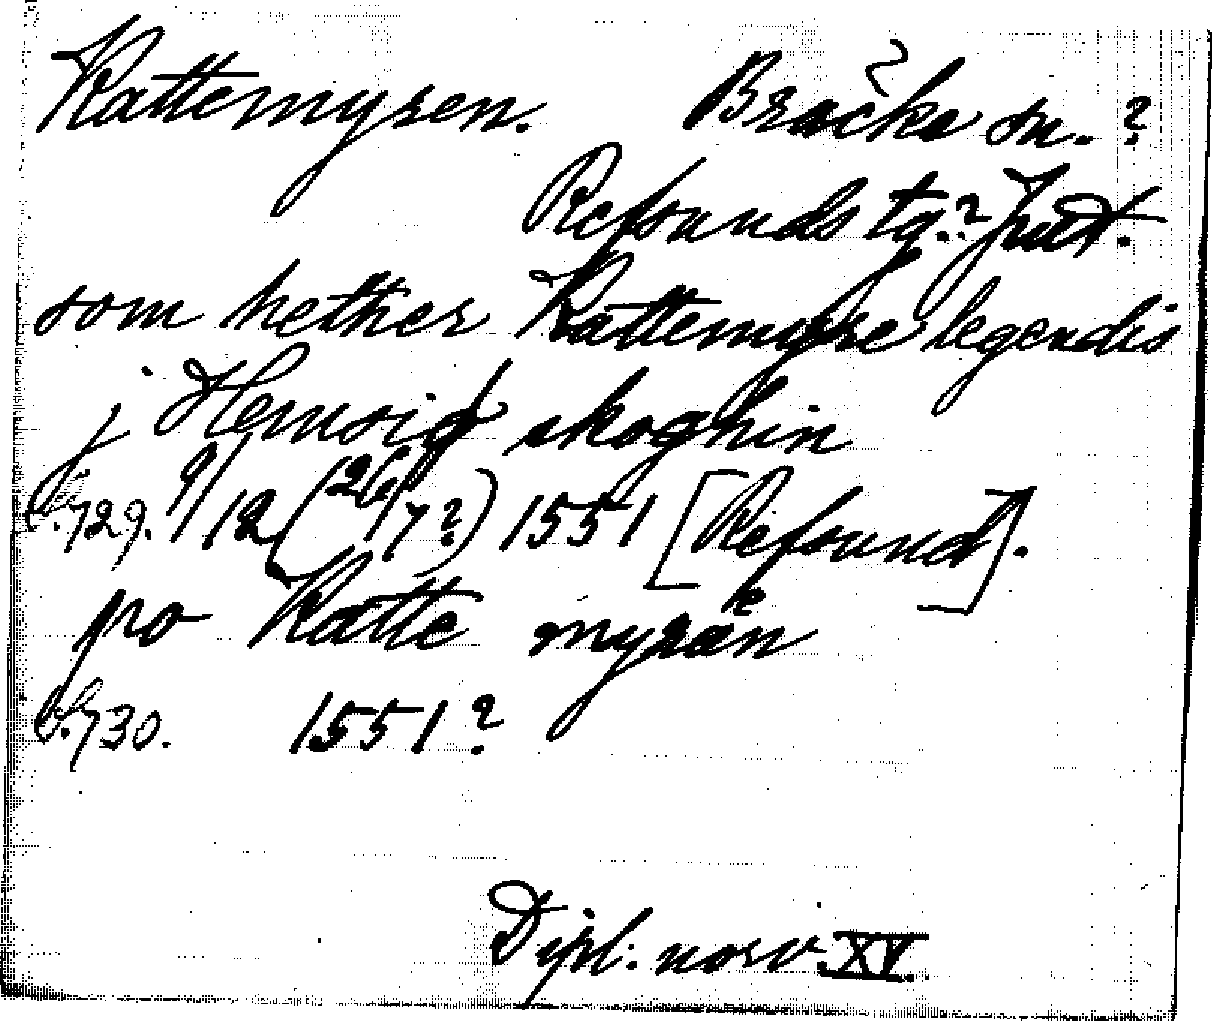 Kattemyren. Bräcke sn. ?
Refsunds tg.? Jmt.
som hether Kattemyre legendis
j Hemsiø skoghin
s. 729. 9/12 (26/7 ?) 1551 [Refsund].
pro Katte myræn
s. 730. 1551 ?
Dipl. norv. XV.